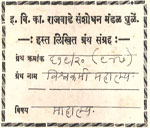 इ. वि. का. राजवाडे संशोधन मंडळ धुळे.
हस्त लिखित ग्रंथ संग्रह :
ग्रंथ क्रमांक
ग्रंथ नाम
महात्म्य.
विषय
माहात्म्य.